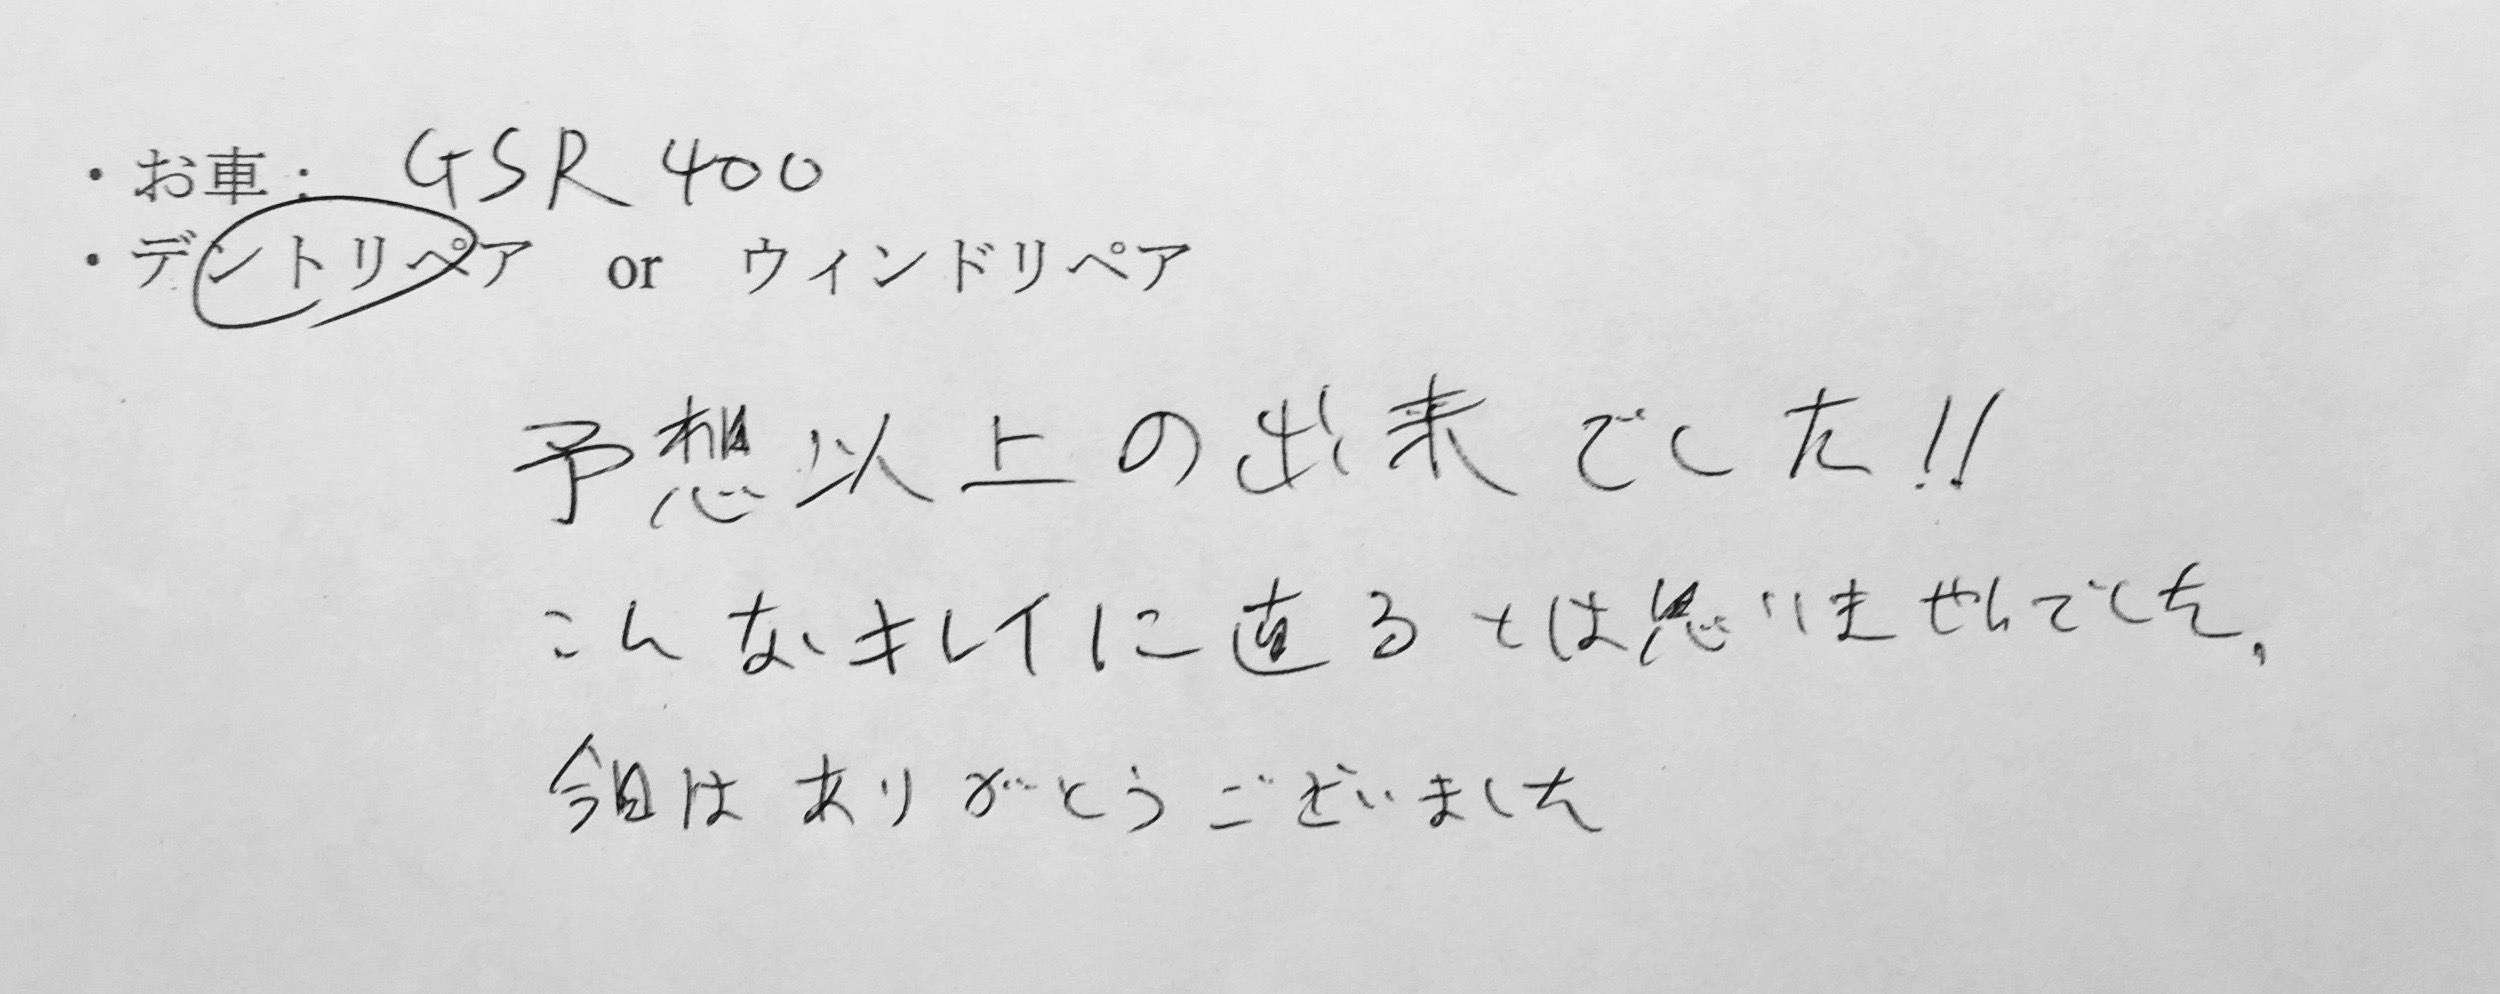 ・お車： GSR 400
・デントリペア or ウィンドリペア
予想以上の出来でした!!
こんなキレイに直るとは思いませんでした。
今回はありがとうございました